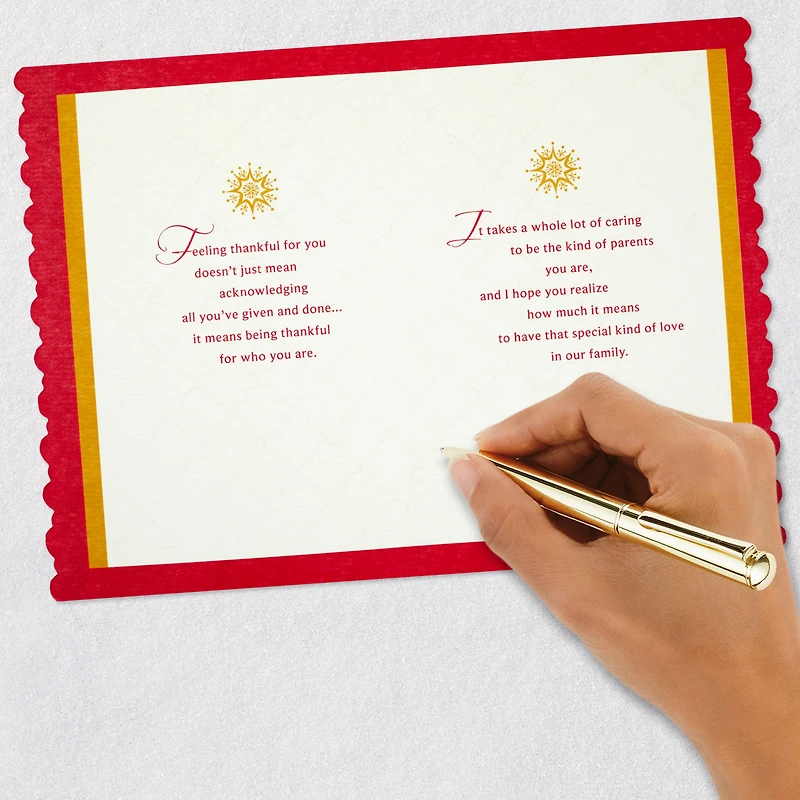 Feeling thankful for you
doesn't just mean
acknowledging
all you've given and done...
it means being thankful
for who you are.
It takes a whole lot of caring
to be the kind of parents
you are,
and I hope you realize
how much it means
to have that special kind of love
in our family.